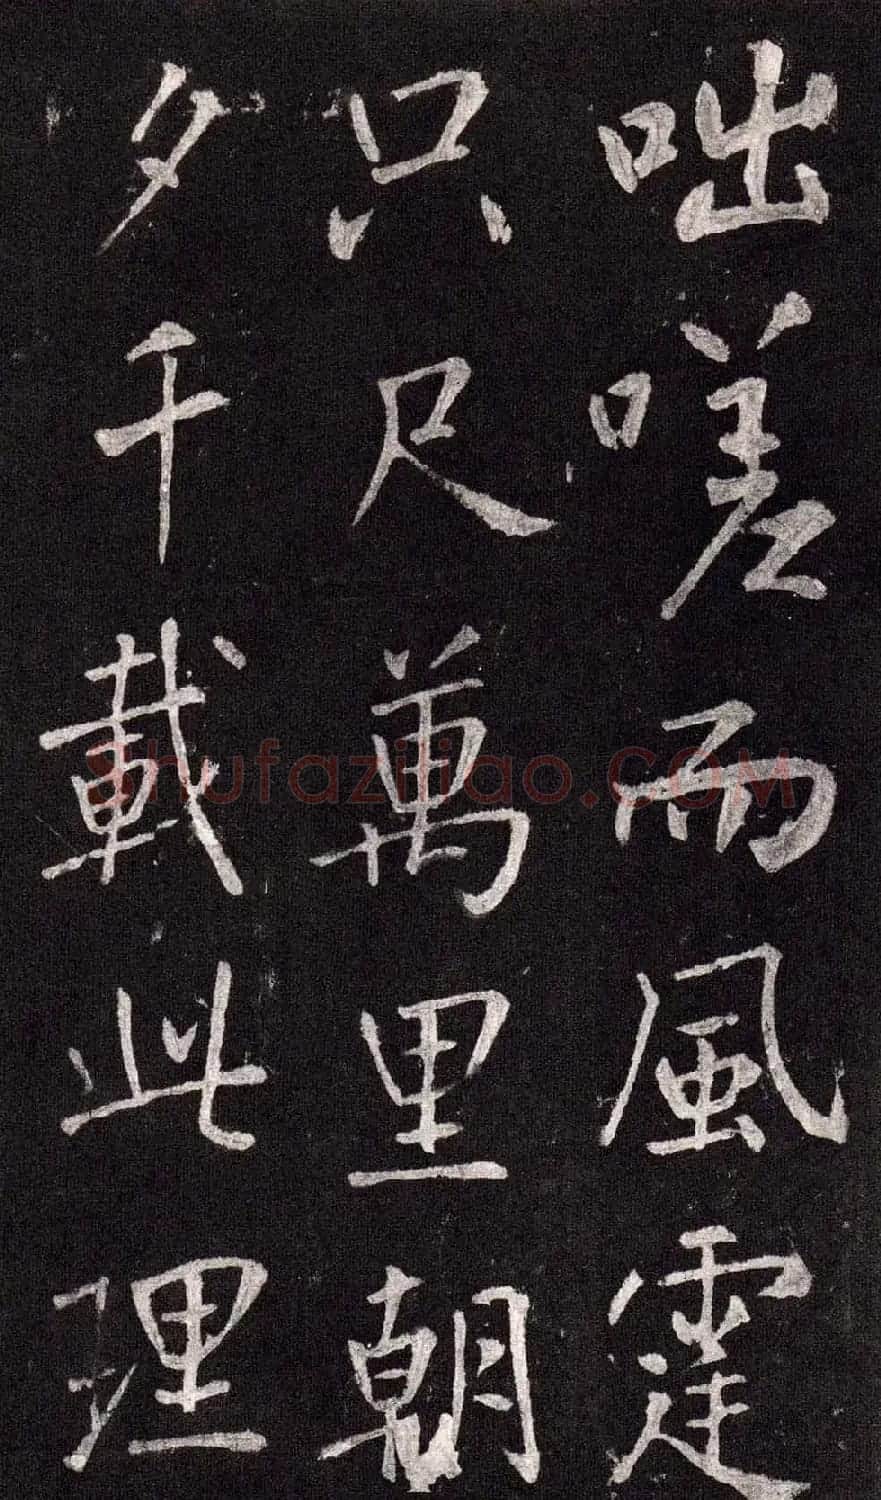 咄嗟而風霆
只尺萬里朝
夕千載此理
Shufaziliao.COM